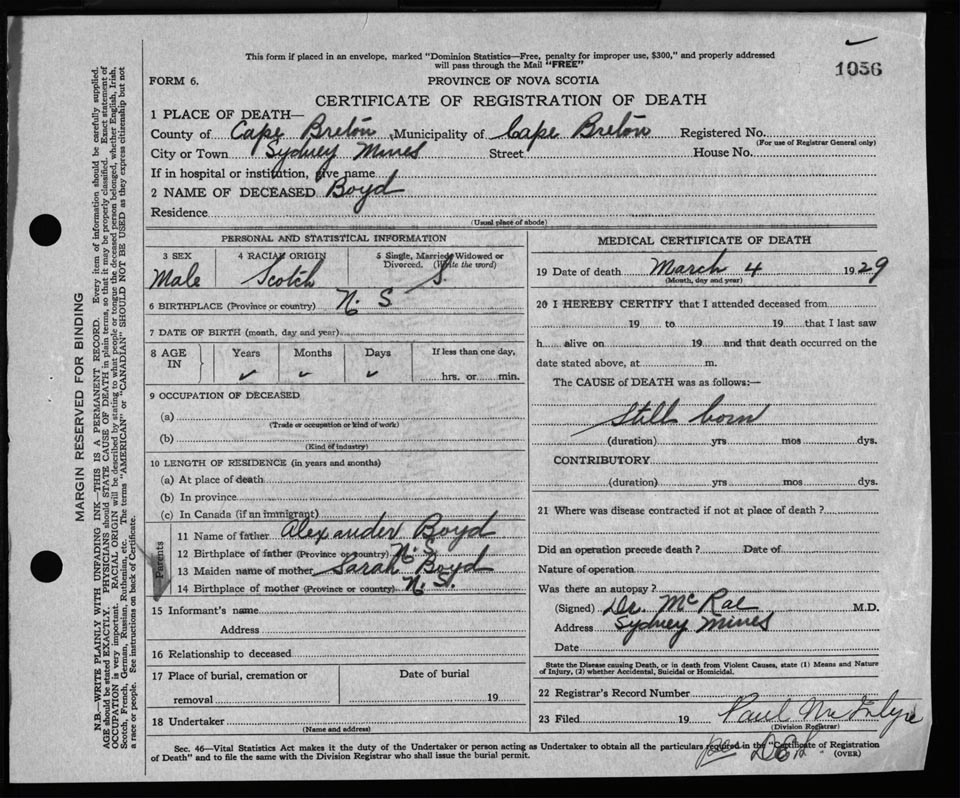 This form if placed in an envelope, marked "Dominion Statistics—Free, penalty for improper use, $300," and properly addressed
will pass through the Mail "FREE"
1056
FORM 6. PROVINCE OF NOVA SCOTIA
CERTIFICATE OF REGISTRATION OF DEATH
1 PLACE OF DEATH—
County of Cape Breton Municipality of Cape Breton Registered No.
(For use of Registrar General only)
City or Town Sydney Mines Street House No.
If in hospital or institution, give name
2 NAME OF DECEASED Boyd
Residence
(Usual place of abode)
PERSONAL AND STATISTICAL INFORMATION
3 SEX 4 RACIAL ORIGIN 5 Single, Married, Widowed or
Divorced. (Write the word)
Male Scotch S.
6 BIRTHPLACE (Province or country) N. S
7 DATE OF BIRTH (month, day and year)
8 AGE IN Years Months Days If less than one day,
hrs. or min.
9 OCCUPATION OF DECEASED
(a)
(Trade or occupation or kind of work)
(b)
(Kind of industry)
10 LENGTH OF RESIDENCE (in years and months)
(a) At place of death
(b) In province
(c) In Canada (if an immigrant)
Parents
11 Name of father Alexander Boyd
12 Birthplace of father (Province or country) N. S.
13 Maiden name of mother Sarah Boyd
14 Birthplace of mother (Province or country) N. S.
15 Informant's name
Address
16 Relationship to deceased
17 Place of burial, cremation or Date of burial
removal 19
18 Undertaker
(Name and address)
MEDICAL CERTIFICATE OF DEATH
19 Date of death March 4 1929
(Month, day and year)
20 I HEREBY CERTIFY that I attended deceased from
19 to 19 that I last saw
h alive on 19 and that death occurred on the
date stated above, at m.
The CAUSE of DEATH was as follows:—
Still born
(duration) yrs mos dys.
CONTRIBUTORY
(duration) yrs mos dys.
21 Where was disease contracted if not at place of death?
Did an operation precede death? Date of
Nature of operation
Was there an autopsy?
(Signed) Dr. McRae M.D.
Address Sydney Mines
Date
State the Disease causing Death, or in death from Violent Causes, state (1) Means and Nature
of Injury, (2) whether Accidental, Suicidal or Homicidal.
22 Registrar's Record Number
23 Filed 19 Paul McIntyre
(Division Registrar)
Sec. 46—Vital Statistics Act makes it the duty of the Undertaker or person acting as Undertaker to obtain all the particulars required in the "Certificate of Registration
of Death" and to file the same with the Division Registrar who shall issue the burial permit.
(OVER)
per
MARGIN RESERVED FOR BINDING
N.B.—WRITE PLAINLY WITH UNFADING INK—THIS IS A PERMANENT RECORD. Every item of information should be carefully supplied.
AGE should be stated EXACTLY. PHYSICIANS should STATE CAUSE OF DEATH in plain terms, so that it may be properly classified. Exact statement of
OCCUPATION is very important. RACIAL ORIGIN will be described by stating to what people or tongue the deceased person belonged, whether English, Irish,
Scotch, French, German, Russian, Ruthenian, etc. The terms "AMERICAN" or "CANADIAN" SHOULD NOT BE USED as they express citizenship but not
a race or people. See instructions on back of Certificate.